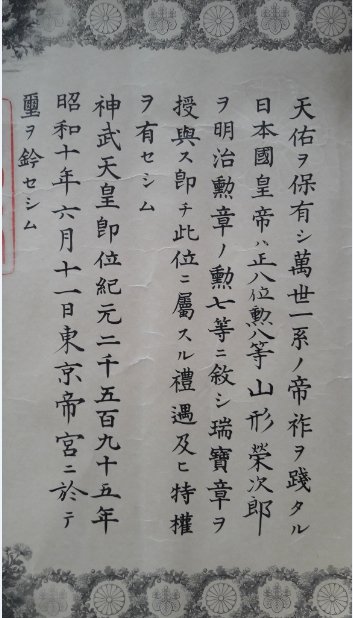 天佑ヲ保有シ萬世一系ノ帝祚ヲ踐タル
日本國皇帝ハ正八位勲八等山形榮次郎
ヲ明治勲章ノ勲七等ニ敘シ瑞寶章ヲ
授與ス即チ此位ニ屬スル禮遇及ヒ特權
ヲ有セシム
神武天皇即位紀元二千五百九十五年
昭和十年六月十一日東京帝宮ニ於テ
璽ヲ鈐セシム